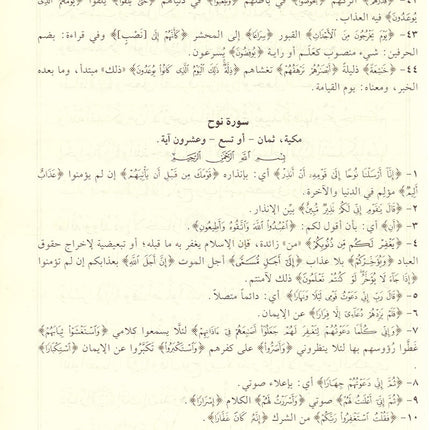 ٤٢- ﴿فَذَرْهُمْ﴾ اتركهم ﴿يَخُوضُوا﴾ في باطلهم ﴿وَيَلْعَبُوا﴾ في دنياهم ﴿حَتَّى يُلَاقُوا﴾ يلقوا ﴿يَوْمَهُمُ الَّذِي
يُوعَدُونَ﴾ فيه العذاب.
٤٣- ﴿يَوْمَ يَخْرُجُونَ مِنَ الْأَجْدَاثِ﴾ القبور ﴿سِرَاعًا﴾ إلى المحشر ﴿كَأَنَّهُمْ إِلَى [نَصْبٍ]﴾ وفي قراءة: بضم
الحرفين: شيء منصوب كعلَم أو راية ﴿يُوفِضُونَ﴾ يُسرعون.
٤٤- ﴿خَاشِعَةً﴾ ذليلةً ﴿أَبْصَارُهُمْ تَرْهَقُهُمْ﴾ تغشاهم ﴿ذِلَّةٌ ذَلِكَ الْيَوْمُ الَّذِي كَانُوا يُوعَدُونَ﴾ «ذلك» مبتدأ، وما بعده
الخبر، ومعناه: يوم القيامة.
سورة نوح
مكية، ثمان - أو تسع - وعشرون آية.
بِسْمِ اللَّهِ الرَّحْمَنِ الرَّحِيمِ
١- ﴿إِنَّا أَرْسَلْنَا نُوحًا إِلَى قَوْمِهِ أَنْ أَنْذِرْ﴾ أي: بإنذاره ﴿قَوْمَكَ مِنْ قَبْلِ أَنْ يَأْتِيَهُمْ﴾ إن لم يؤمنوا ﴿عَذَابٌ
أَلِيمٌ﴾ مؤلم في الدنيا والآخرة.
٢- ﴿قَالَ يَا قَوْمِ إِنِّي لَكُمْ نَذِيرٌ مُبِينٌ﴾ بيّن الإنذار.
٣- ﴿أَنِ﴾ أي: بأن أقول لكم: ﴿اعْبُدُوا اللَّهَ وَاتَّقُوهُ وَأَطِيعُونِ﴾.
٤- ﴿يَغْفِرْ لَكُمْ مِنْ ذُنُوبِكُمْ﴾ «من» زائدة، فإن الإسلام يغفر به ما قبله؛ أو تبعيضية لإخراج حقوق
العباد ﴿وَيُؤَخِّرْكُمْ﴾ بلا عذاب ﴿إِلَى أَجَلٍ مُسَمًّى﴾ أجل الموت ﴿إِنَّ أَجَلَ اللَّهِ﴾ بعذابكم إن لم تؤمنوا
﴿إِذَا جَاءَ لَا يُؤَخَّرُ لَوْ كُنْتُمْ تَعْلَمُونَ﴾ ذلك لآمنتم.
٥- ﴿قَالَ رَبِّ إِنِّي دَعَوْتُ قَوْمِي لَيْلًا وَنَهَارًا﴾ أي: دائماً متصلاً.
٦- ﴿فَلَمْ يَزِدْهُمْ دُعَائِي إِلَّا فِرَارًا﴾ عن الإيمان.
٧- ﴿وَإِنِّي كُلَّمَا دَعَوْتُهُمْ لِتَغْفِرَ لَهُمْ جَعَلُوا أَصَابِعَهُمْ فِي آذَانِهِمْ﴾ لئلا يسمعوا كلامي ﴿وَاسْتَغْشَوْا ثِيَابَهُمْ﴾
غطَّوا رؤوسهم بها لئلا ينظروني ﴿وَأَصَرُّوا﴾ على كفرهم ﴿وَاسْتَكْبَرُوا﴾ تكبَّروا عن الإيمان ﴿اسْتِكْبَارًا﴾.
٨- ﴿ثُمَّ إِنِّي دَعَوْتُهُمْ جِهَارًا﴾ أي: بإعلاء صوتي.
٩- ﴿ثُمَّ إِنِّي أَعْلَنْتُ لَهُمْ﴾ صوتي ﴿وَأَسْرَرْتُ لَهُمْ﴾ الكلام ﴿إِسْرَارًا﴾.
١٠- ﴿فَقُلْتُ اسْتَغْفِرُوا رَبَّكُمْ﴾ من الشرك ﴿إِنَّهُ كَانَ غَفَّارًا﴾.